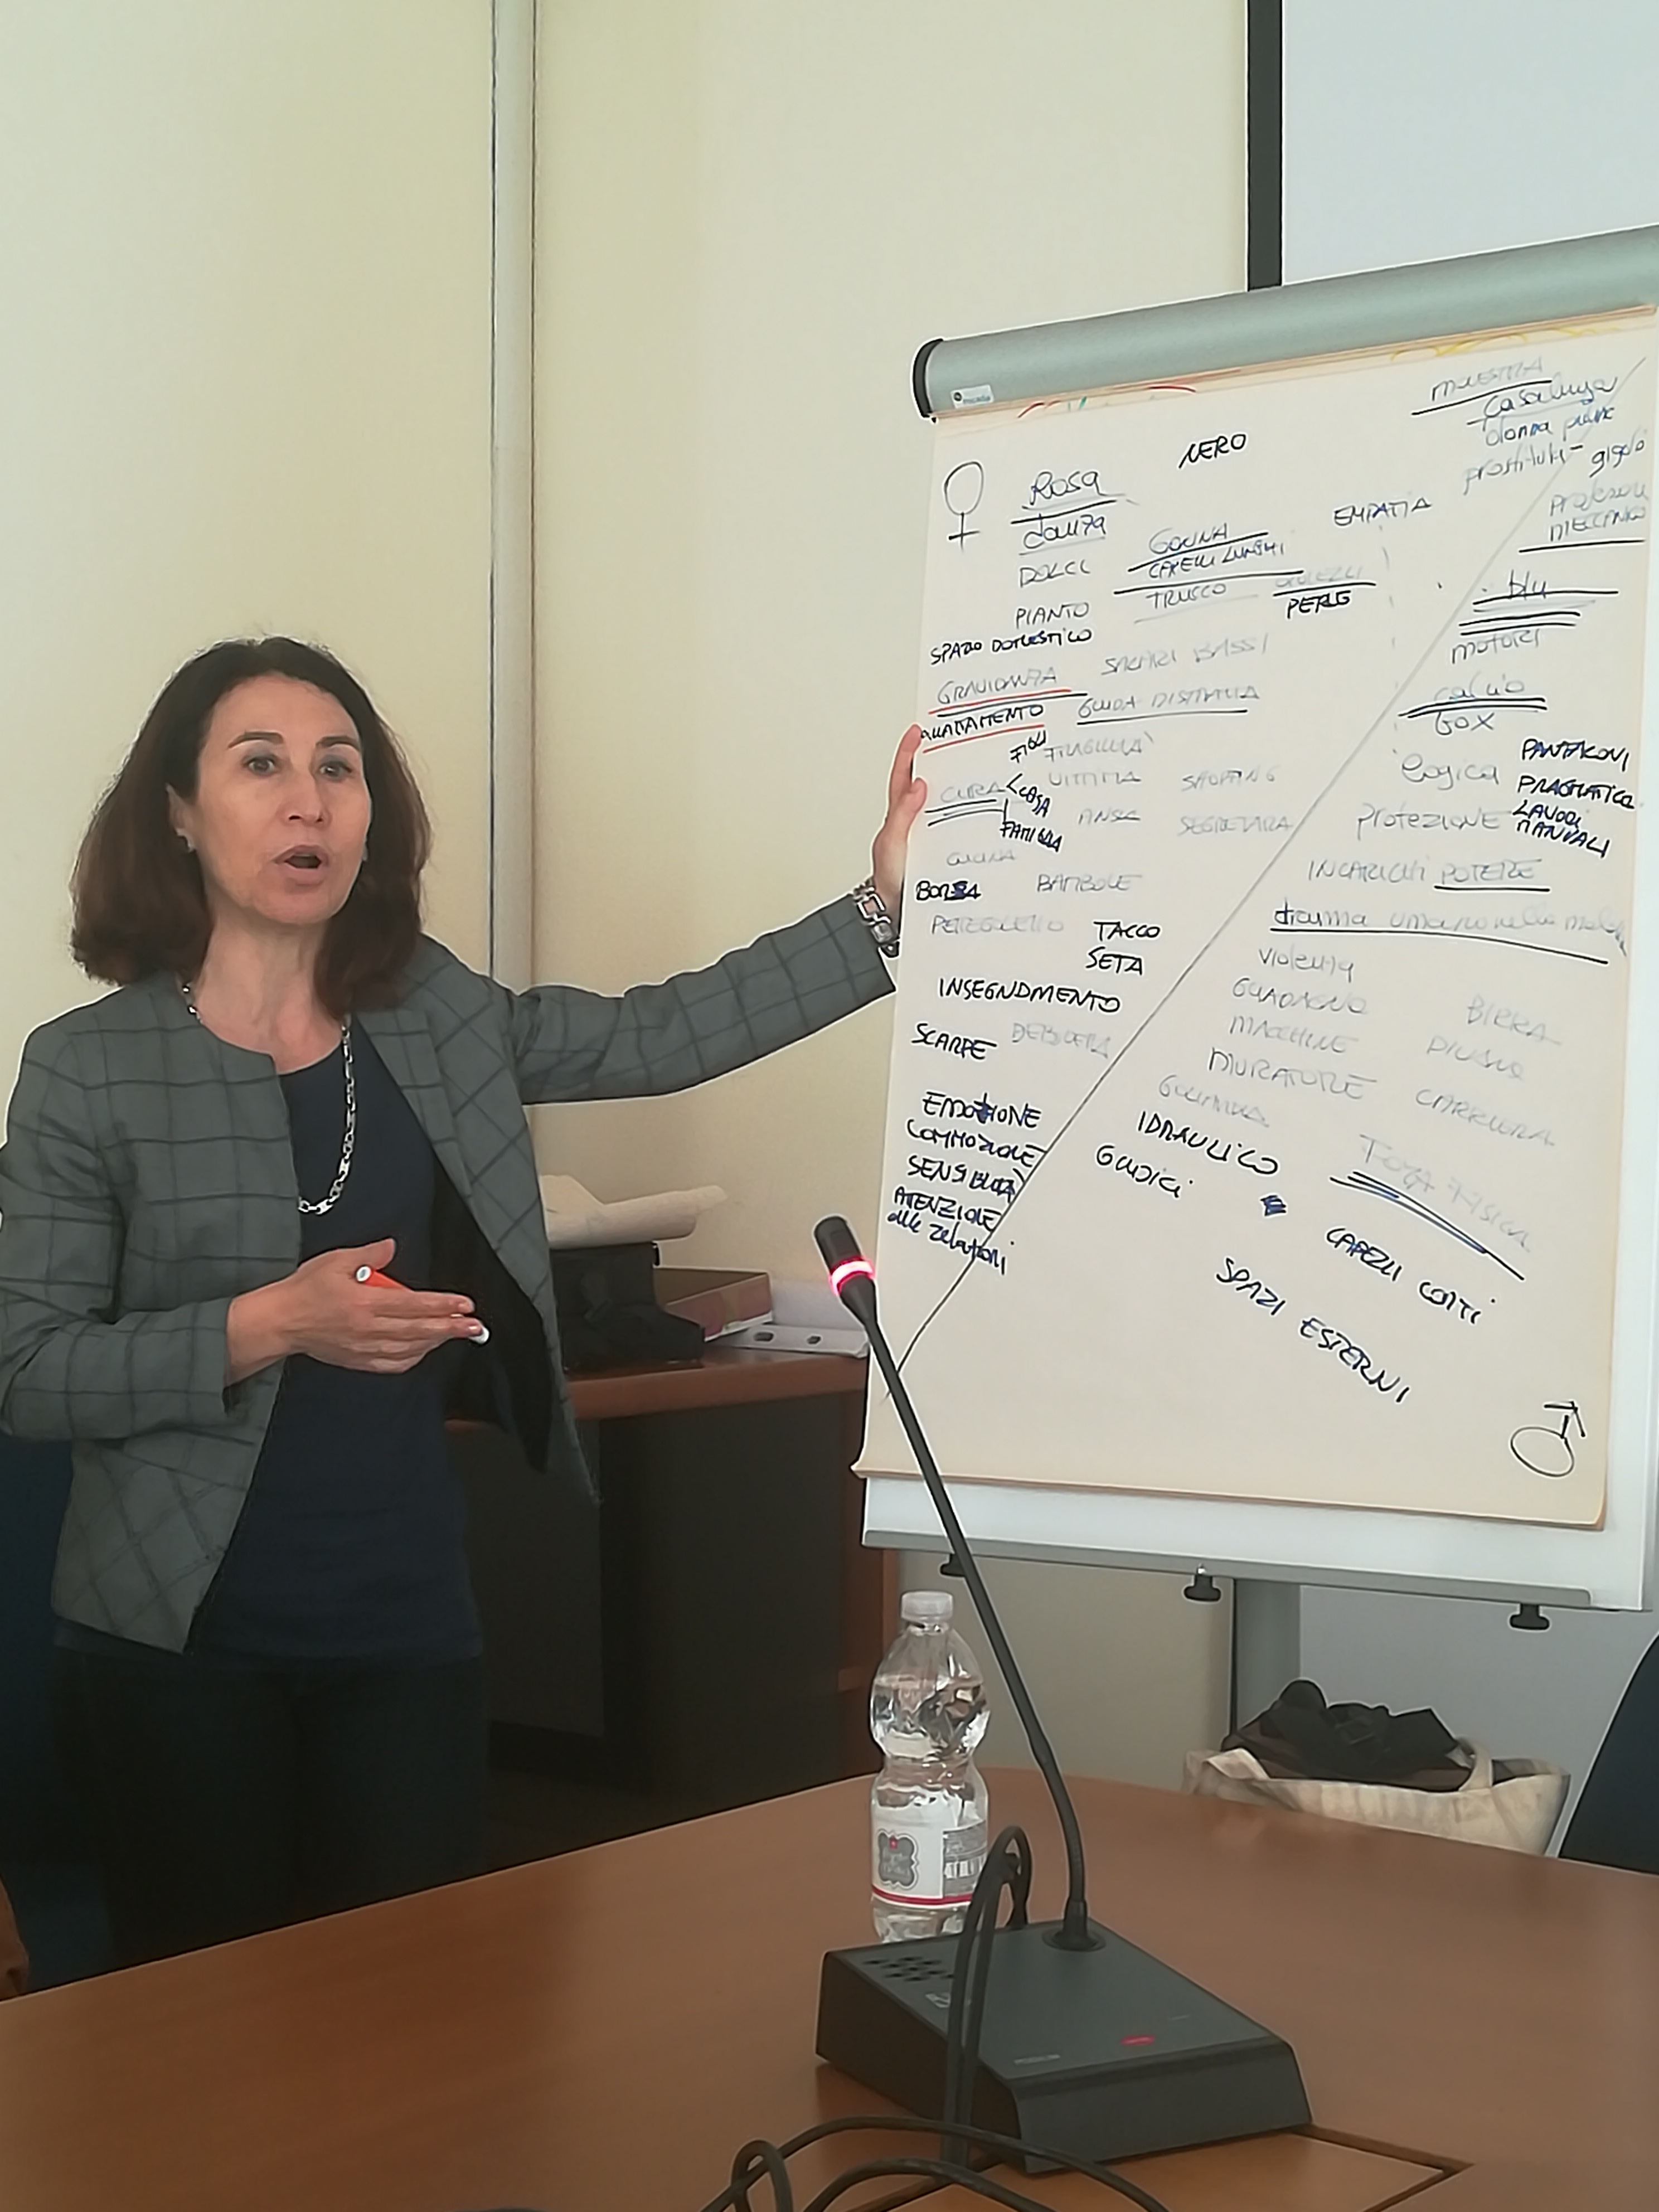 NERO
♀
Rosa
danza
DOLCI
PIANTO
SPAZIO DOMESTICO
GRAVIDANZA
ALLATTAMENTO
FIGLI
CURA
CASA
FAMIGLIA
CUCINA
BORSA
PETTEGOLEZZO
INSEGNAMENTO
SCARPE
DEBOLEZZA
EMOZIONE
COMMOZIONE
SENSIBILITÀ
ATTENZIONE
alle relazioni
GONNA
CAPELLI LUNGHI
TRUCCO
PERLE
EMPATIA
SALARI BASSI
GUIDA DISTRATTA
FRAGILITÀ
VITTIMA
SHOPPING
ANSIA
SEGRETARIA
BAMBOLE
TACCO
SETA
MAESTRA
casalinga
donna pulizie
gigolo
MECCANICO
blu
motori
calcio
BOX
logica
PANTALONI
PRAGMATICO
protezione
LAVORI
MANUALI
INCARICHI POTERE
violenza
GUADAGNO
BIRRA
MACCHINE
MURATORE
CARRIERA
IDRAULICO
GIUDICI
FORZA FISICA
CAPELLI CORTI
SPAZI ESTERNI
♂